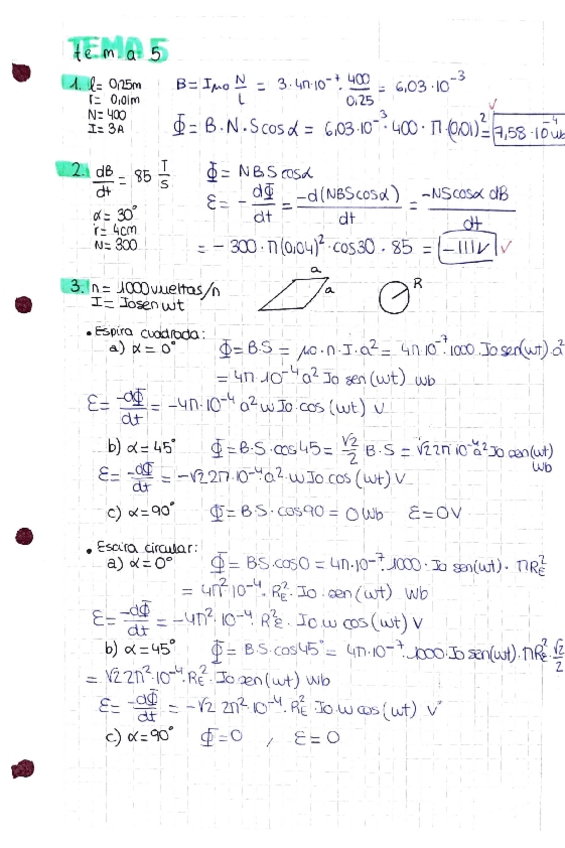 TEMA 5
1. l = 0,25m B = Iμo N/L = 3·4π·10⁻⁷ · 400/0,25 = 6,03·10⁻³
r = 0,01m
N = 400
I = 3A Φ = B·N·S cosα = 6,03·10⁻³·400·π·(0,01)² = 7,58·10⁻⁴ wb
2. dB/dt = 85 T/s Φ = NBS cosα
α = 30° ε = - dΦ/dt = -d(NBScosα)/dt = -NScosα dB/dt
r = 4cm
N = 300 = -300·π(0,04)²·cos30·85 = -111V
3. n = 1000 vueltas/n a a R
I = Iosenwt
• Espira cuadrada:
a) α = 0° Φ = B·S = μo·n·I·a² = 4π·10⁻⁷·1000·Io sen(wt)·a²
= 4π·10⁻⁴a² Io sen(wt) wb
ε = -dΦ/dt = -4π·10⁻⁴a²wIo·cos(wt) V
b) α = 45° Φ = B·S·cos45 = √2/2 B·S = √2 2π·10⁻⁴a² Io sen(wt) Wb
ε = -dΦ/dt = -√2 2π·10⁻⁴·a²·wIo cos(wt) V
c) α = 90° Φ = B·S·cos90 = 0 Wb ε = 0V
• Escira circular:
a) α = 0° Φ = BS·cos0 = 4π·10⁻⁷·1000·Io sen(wt)·πR_E²
= 4π²·10⁻⁴·R_E²·Io·sen(wt) Wb
ε = -dΦ/dt = -4π²·10⁻⁴·R²e·Io w cos(wt) V
b) α = 45° Φ = B·S·cos45° = 4π·10⁻⁷·1000·Io sen(wt)·πR_E²·√2/2
= √2 2π²·10⁻⁴·R_E²·Io sen(wt) wb
ε = -dΦ/dt = -√2 2π²·10⁻⁴·R_E² Io·w cos(wt) V
c) α = 90° Φ = 0 , ε = 0